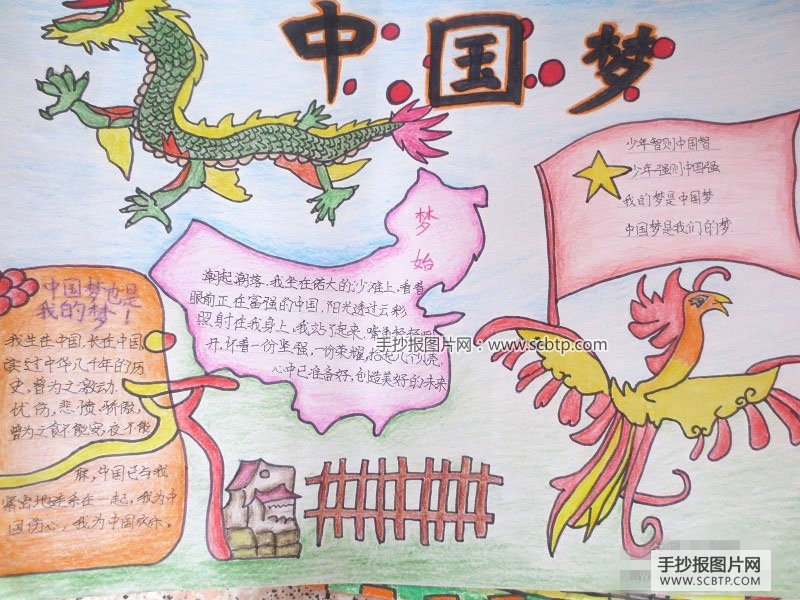 中国梦
少年智则中国智
少年强则中国强
我的梦是中国梦
中国梦是我们的梦
梦
始
潮起潮落,我坐在偌大的沙滩上,看着
眼前正在富强的中国,阳光透过云彩
照射在我身上,我站了起来,嘴角轻轻
开,怀着一份坚强,一份荣耀,拾起几许
心中已准备好,创造美好的未来
手抄报图片网:www.scbtp.com
中国梦也是
我的梦!
我生在中国,长在中国,
读过中华几千年的历
史,曾为之激动、
忧伤,悲愤,骄傲,
曾为之食不能安,夜不能
寐,中国已与我
紧密地连系在一起,我为中
国伤心,我为中国欢乐。
手抄报图片网
WWW.SCBTP.COM